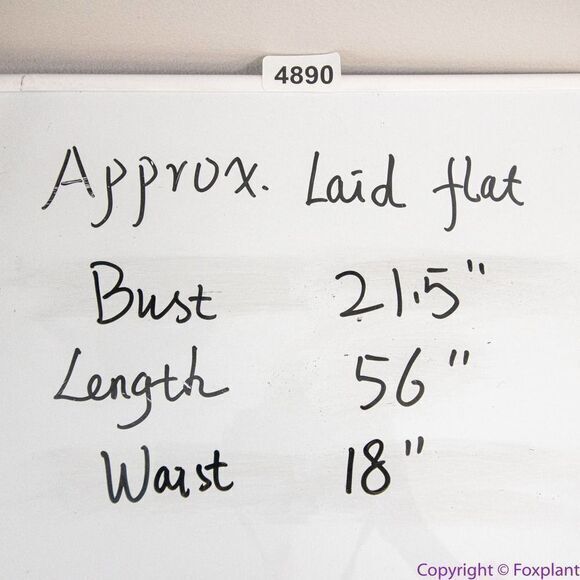 4890
Approx. Laid flat
Bust 21.5"
Length 56"
Waist 18"
Copyright © Foxplant